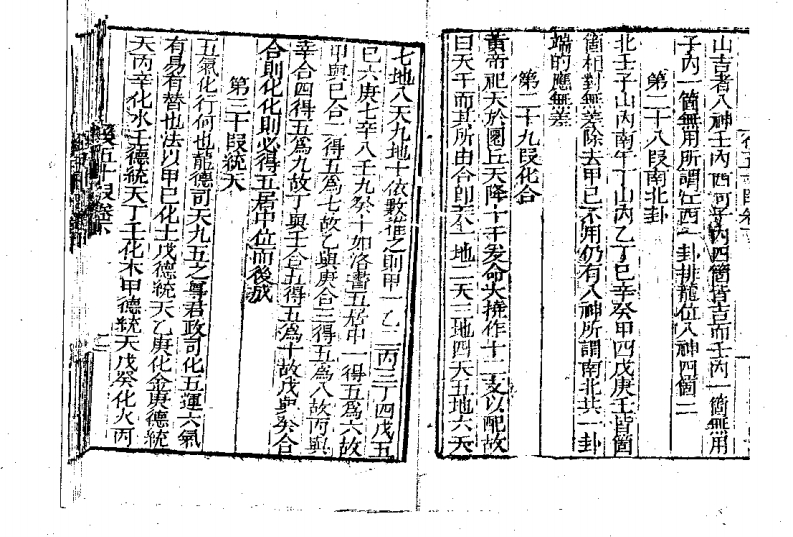 山吉者八神壬丙四河子丙四箇皆吉而壬丙一箇無用
子丙一箇無用所謂江西一卦排龍位八神四箇二
第二十八段南北卦
北壬子山丙南午丁山丙乙丁巳辛癸甲四戊庚壬皆箇
箇相對無差除去甲巳不用仍有八神所謂南北共一卦
端的應無差
第二十九段化合
黃帝祀天於圜丘天降十干爰命大撓作十二支以配故
曰天干而其所由合卽天一地二天三地四天五地六天
七地八天九地十依數推之則甲一乙二丙三丁四戊五
巳六庚七辛八壬九癸十如洛書五居中一得五爲六故
甲與巳合二得五爲七故乙與庚合三得五爲八故丙與
辛合四得五爲九故丁與壬合五得五爲十故戊與癸合
合則化化則必得五居中位而後成
第三十段統天
五氣化行何也龍德司天九五之尊君政司化五運六氣
有易有替也法以甲巳化土戊德統天乙庚化金庚德統
天丙辛化水壬德統天丁壬化木甲德統天戊癸化火丙